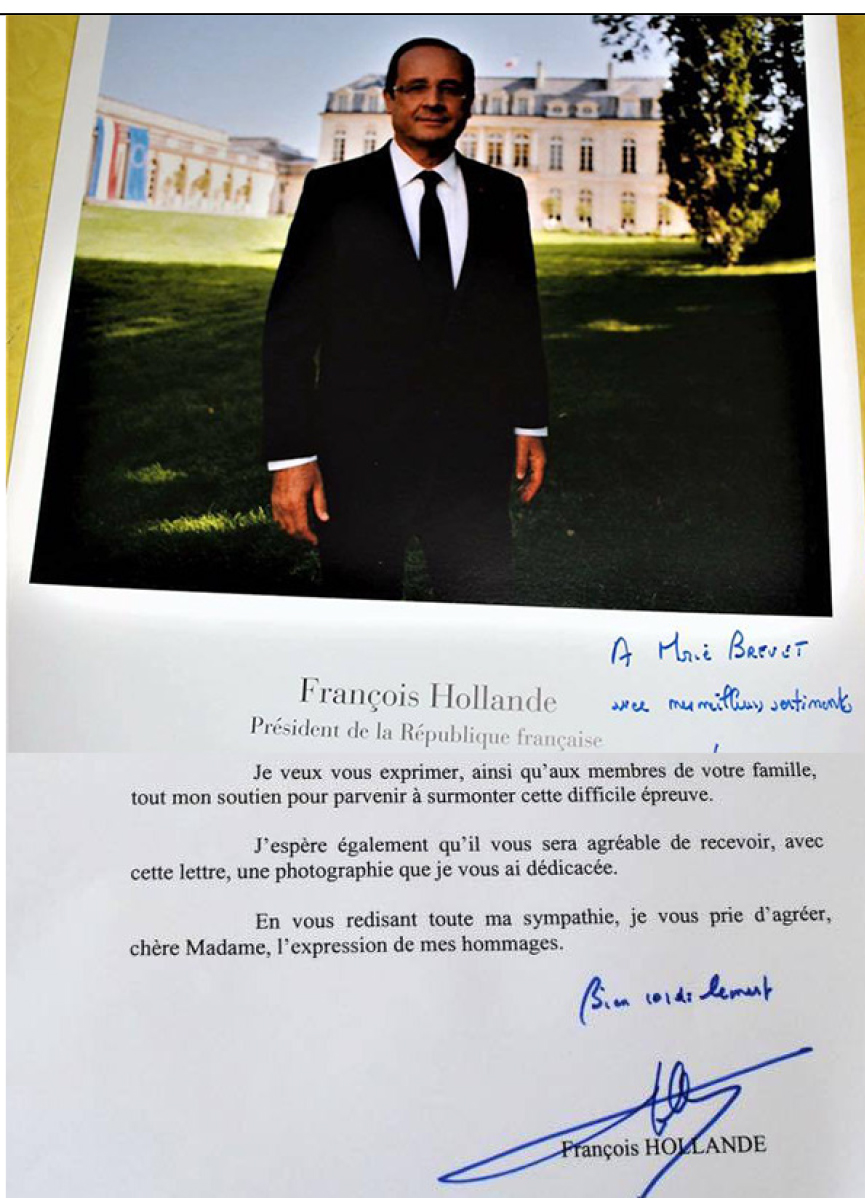 A Marie BREVET
avec mes meilleurs sentiments
François Hollande
Président de la République française
Je veux vous exprimer, ainsi qu'aux membres de votre famille,
tout mon soutien pour parvenir à surmonter cette difficile épreuve.
J'espère également qu'il vous sera agréable de recevoir, avec
cette lettre, une photographie que je vous ai dédicacée.
En vous redisant toute ma sympathie, je vous prie d'agréer,
chère Madame, l'expression de mes hommages.
Bien cordialement
François HOLLANDE